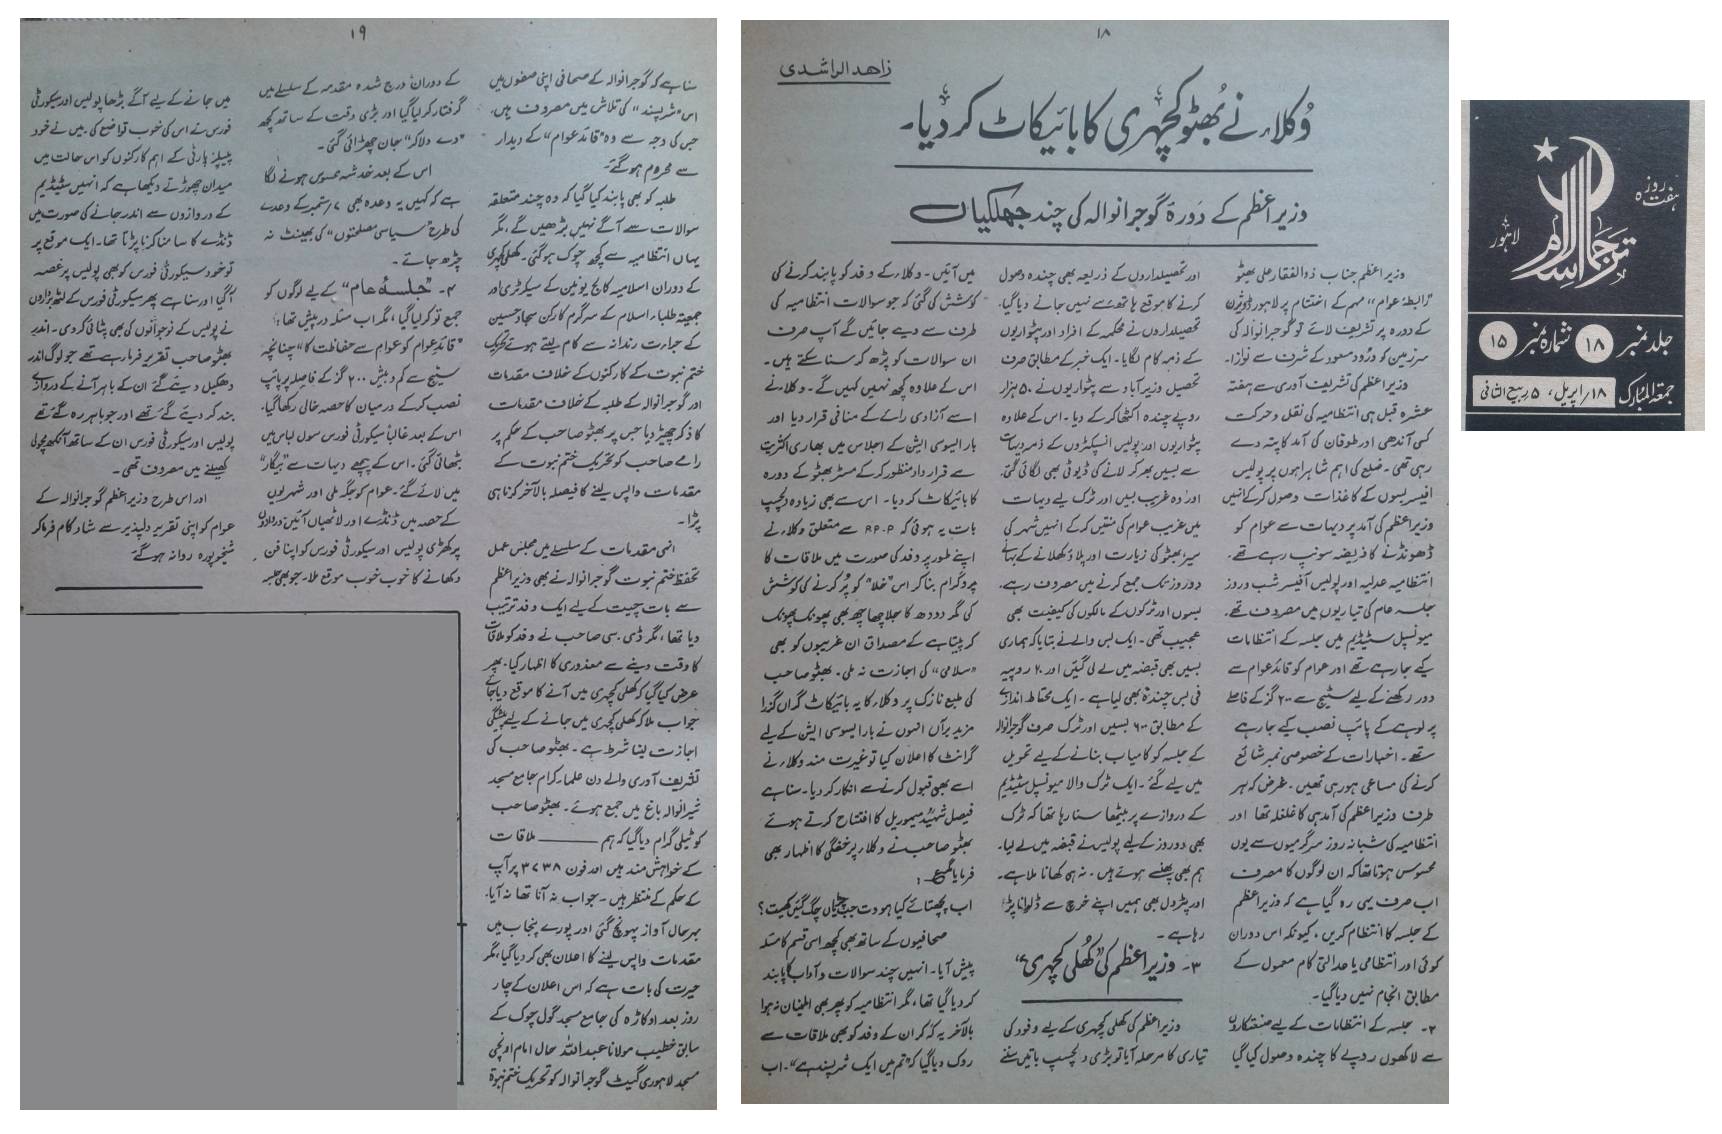 ۱۸
زاھد الراشدی
وُکلاء نے بھُٹو کچہری کا بائیکاٹ کر دیا۔
وزیر اعظم کے دَورۂ گوجرانوالہ کی چند جھلکیاں
وزیر اعظم جناب ذوالفقار علی بھٹو
"رابطۂ عوام" مہم کے اختتام پر لاہور ڈویژن
کے دورہ پر تشریف لائے تو گوجرانوالہ کی
سرزمین کو ورُود مسعود کے شرف سے نوازا۔
وزیر اعظم کی تشریف آوری سے ہفتہ
عشرہ قبل ہی انتظامیہ کی نقل و حرکت
کسی آندھی اور طوفان کی آمد کا پتہ دے
رہی تھی۔ ضلع کی اہم شاہراہوں پر پولیس
افیسر بسوں کے کاغذات وصول کر کے انہیں
وزیر اعظم کی آمد پر دیہات سے عوام کو
ڈھونڈنے کا فریضہ سونپ رہے تھے۔
انتظامیہ عدلیہ اور پولیس آفیسر شب و روز
جلسہ عام کی تیاریوں میں مصروف تھے۔
میونسپل سٹیڈیم میں جلسہ کے انتظامات
کیے جا رہے تھے اور عوام کو قائد عوام سے
دور رکھنے کے لیے سٹیج سے ۲۰۰ گز کے فاصلے
پر لوہے کے پائپ نصب کیے جا رہے
تھے۔ اخبارات کے خصوصی نمبر شائع
کرنے کی مساعی ہو رہی تھیں۔ غرض کہ ہر
طرف وزیر اعظم کی آمد ہی کا غلغلہ تھا اور
انتظامیہ کی شبانہ روز سرگرمیوں سے یوں
محسوس ہوتا تھا کہ ان لوگوں کا مصرف
اب صرف یہی رہ گیا ہے کہ وزیر اعظم
کے جلسہ کا انتظام کریں، کیونکہ اس دوران
کوئی اور انتظامی یا عدالتی کام معمول کے
مطابق انجام نہیں دیا گیا۔
۲۔ جلسہ کے انتظامات کے لیے صنعتکاروں
سے لاکھوں روپے کا چندہ وصول کیا گیا
اور تحصیلداروں کے ذریعہ بھی چندہ وصول
کرنے کا موقع ہاتھ سے نہیں جانے دیا گیا۔
تحصیلداروں نے محکمہ کے افراد اور پٹواریوں
کے ذمہ کام لگایا۔ ایک خبر کے مطابق صرف
تحصیل وزیر آباد سے پٹواریوں نے ۵۰ ہزار
روپے چندہ اکٹھا کر کے دیا۔ اس کے علاوہ
پٹواریوں اور پولیس انسپکٹروں کے ذمہ دیہات
سے بسیں بھر کر لانے کی ڈیوٹی بھی لگائی گئی۔
اور وہ غریب بسیں اور ٹرک لیے دیہات
میں غریب عوام کی منتیں کر کے انہیں شہر کی
سیر، بھٹو کی زیارت اور پلاؤ کھلانے کے بہانے
دو روز تک جمع کرنے میں مصروف رہے۔
بسوں اور ٹرکوں کے مالکوں کی کیفیت بھی
عجیب تھی۔ ایک بس والے نے بتایا کہ ہماری
بسیں بھی قبضہ میں لے لی گئیں اور ۲۰ روپیہ
فی بس چندہ بھی لیا ہے۔ ایک محتاط اندازے
کے مطابق ۶۰۰ بسیں اور ٹرک صرف گوجرانوالہ
کے جلسہ کو کامیاب بنانے کے لیے تحویل
میں لیے گئے۔ ایک ٹرک والا میونسپل سٹیڈیم
کے دروازے پر بیٹھا سنا رہا تھا کہ ٹرک
بھی دو روز کے لیے پولیس نے قبضہ میں لے لیا۔
ہم بھی پھنسے ہوئے ہیں۔ نہ ہی کھانا ملا ہے۔
اور پٹرول بھی ہمیں اپنے خرچ سے ڈلوانا پڑ
رہا ہے۔
۳۔ وزیر اعظم کی "کھُلی کچہری"
وزیر اعظم کی کھلی کچہری کے لیے وفود کی
تیاری کا مرحلہ آیا تو بڑی دلچسپ باتیں سننے
میں آئیں۔ وکلاء کے وفد کو پابند کرنے کی
کوشش کی گئی کہ جو سوالات انتظامیہ کی
طرف سے دیے جائیں گے آپ صرف
ان سوالات کو پڑھ کر سنا سکتے ہیں۔
اس کے علاوہ کچھ نہیں کہیں گے۔ وکلاء نے
اسے آزادی رائے کے منافی قرار دیا اور
بار ایسوسی ایشن کے اجلاس میں بھاری اکثریت
سے قرارداد منظور کر کے مسٹر بھٹو کے دورہ
کا بائیکاٹ کر دیا۔ اس سے بھی زیادہ دلچسپ
بات یہ ہوئی کہ P.P.P سے متعلق وکلاء نے
اپنے طور پر وفد کی صورت میں ملاقات کا
پروگرام بنا کر اس "خلا" کو پُر کرنے کی کوشش
کی مگر دودھ کا جلا چھاچھ بھی پھونک پھونک
کر پیتا ہے کے مصداق ان غریبوں کو بھی
"سلامی" کی اجازت نہ ملی۔ بھٹو صاحب
کی طبع نازک پر وکلاء کا یہ بائیکاٹ گراں گزرا
مزید برآں انہوں نے بار ایسوسی ایشن کے لیے
گرانٹ کا اعلان کیا تو غیرت مند وکلاء نے
اسے بھی قبول کرنے سے انکار کر دیا۔ سنا ہے
فیصل شہیدؒ میموریل کا افتتاح کرتے ہوئے
بھٹو صاحب نے وکلاء پر خفگی کا اظہار بھی
فرمایا مگر ع
اب پچھتائے کیا ہووت جب چڑیاں چگ گئیں کھیت؟
صحافیوں کے ساتھ بھی کچھ اسی قسم کا مسئلہ
پیش آیا۔ انہیں چند سوالات و آداب کا پابند
کر دیا گیا تھا، مگر انتظامیہ کو پھر بھی اطمینان نہ ہوا
بالآخر یہ کہہ کر ان کے وفد کو بھی ملاقات سے
روک دیا گیا کہ "تم میں ایک شرپسند ہے"۔ اب
۱۹
سنا ہے کہ گوجرانوالہ کے صحافی اپنی صفوں میں
اس "شرپسند" کی تلاش میں مصروف ہیں۔
جس کی وجہ سے وہ "قائد عوام" کے دیدار
سے محروم ہو گئے۔
طلبہ کو بھی پابند کیا گیا کہ وہ چند متعلقہ
سوالات سے آگے نہیں بڑھیں گے، مگر
یہاں انتظامیہ سے کچھ چوک ہو گئی۔ کھلی کچہری
کے دوران اسلامیہ کالج یونین کے سیکرٹری اور
جمعیۃ طلباء اسلام کے سرگرم کارکن سجاد حسین
کے جراءت رندانہ سے کام لیتے ہوئے تحریک
ختم نبوت کے کارکنوں کے خلاف مقدمات
اور گوجرانوالہ کے طلبہ کے خلاف مقدمات
کا ذکر چھیڑ دیا جس پر بھٹو صاحب کے حکم پر
رامے صاحب کو تحریک ختم نبوت کے
مقدمات واپس لینے کا فیصلہ بالآخر کرنا ہی
پڑا۔
انہی مقدمات کے سلسلے میں مجلس عمل
تحفظ ختم نبوت گوجرانوالہ نے بھی وزیر اعظم
سے بات چیت کے لیے ایک وفد ترتیب
دیا تھا، مگر ڈی سی صاحب نے وفد کو ملاقات
کا وقت دینے سے معذوری کا اظہار کیا۔ پھر
عرض کیا گیا کہ کھلی کچہری میں آنے کا موقع دیا جائے
جواب ملا کہ کھلی کچہری میں جانے کے لیے پیشگی
اجازت لینا شرط ہے۔ بھٹو صاحب کی
تشریف آوری والے دن علماء کرام جامع مسجد
شیرانوالہ باغ میں جمع ہوئے۔ بھٹو صاحب
کو ٹیلی گرام دیا گیا کہ ہم ــــــــ ملاقات
کے خواہش مند ہیں اور فون ۳۷۳۸ پر آپ
کے حکم کے منتظر ہیں۔ جواب نہ آنا تھا نہ آیا۔
بہرحال آواز پہونچ گئی اور پورے پنجاب میں
مقدمات واپس لینے کا اعلان بھی کر دیا گیا، مگر
حیرت کی بات ہے کہ اس اعلان کے چار
روز بعد اوکاڑہ کی جامع مسجد گول چوک کے
سابق خطیب مولانا عبد اللہ حال امام اونچی
مسجد لاہوری گیٹ گوجرانوالہ کو تحریک ختم نبوۃ
کے دوران درج شدہ مقدمہ کے سلسلے میں
گرفتار کر لیا گیا اور بڑی دقت کے ساتھ کچھ
"دے دلا کر" جان چھڑائی گئی۔
اس کے بعد خدشہ محسوس ہونے لگا
ہے کہ کہیں یہ وعدہ بھی ۷/ستمبر کے وعدے
کی طرح "سیاسی مصلحتوں" کی بھینٹ نہ
چڑھ جائے۔
۴۔ "جلسۂ عام" کے لیے لوگوں کو
جمع تو کر لیا گیا، مگر اب مسئلہ درپیش تھا:
"قائد عوام کو عوام سے حفاظت کا" چنانچہ
سٹیج سے کم و بیش ۲۰۰ گز کے فاصلہ پر پائپ
نصب کر کے درمیان کا حصہ خالی رکھا گیا۔
اس کے بعد غالباً سیکورٹی فورس سول لباس میں
بٹھائی گئی۔ اس کے پیچھے دیہات سے "بیگار"
میں لائے گئے۔ عوام کو جگہ ملی اور شہریوں
کے حصہ میں ڈنڈے اور لاٹھیاں آئیں دروازوں
پر کھڑی پولیس اور سیکورٹی فورس کو اپنا فن
دکھانے کا خوب خوب موقع ملا۔ جو بھی جلسہ
میں جانے کے لیے آگے بڑھا پولیس اور سیکورٹی
فورس نے اس کی خوب تواضع کی۔ میں نے خود
پیپلز پارٹی کے اہم کارکنوں کو اس حالت میں
میدان چھوڑتے دیکھا ہے کہ انہیں سٹیڈیم
کے دروازوں سے اندر جانے کی صورت میں
ڈنڈے کا سامنا کرنا پڑتا تھا۔ ایک موقع پر
تو خود سیکورٹی فورس کو بھی پولیس پر غصہ
آ گیا اور سنا ہے پھر سیکورٹی فورس کے لٹھ برداروں
نے پولیس کے نوجوانوں کی بھی پٹائی کر دی۔ اندر
بھٹو صاحب تقریر فرما رہے تھے جو لوگ اندر
دھکیل دیئے گئے ان کے باہر آنے کے دروازے
بند کر دیے گئے تھے اور جو باہر رہ گئے تھے
پولیس اور سیکورٹی فورس ان کے ساتھ آنکھ مچولی
کھیلنے میں مصروف تھی۔
اور اس طرح وزیر اعظم گوجرانوالہ کے
عوام کو اپنی تقریر دلپذیر سے شاد کام فرما کر
شیخوپورہ روانہ ہو گئے
ہفت روزہ
ترجمان اسلام
لاہور
جلد نمبر ۱۸ شمارہ نمبر ۱۵
جمعۃ المبارک ۱۸/اپریل، ۵ ربیع الثانی